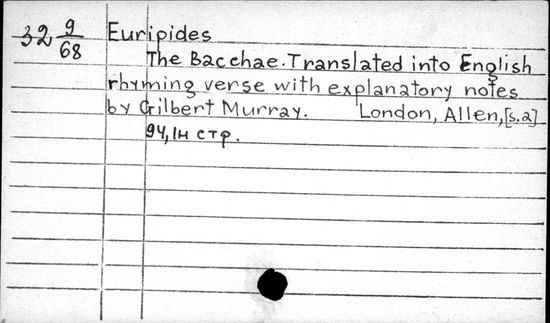 32 9/68 Euripides
The Bacchae. Translated into English
rhyming verse with explanatory notes
by Gilbert Murray. London, Allen, [s.a]
94, 1н стр.